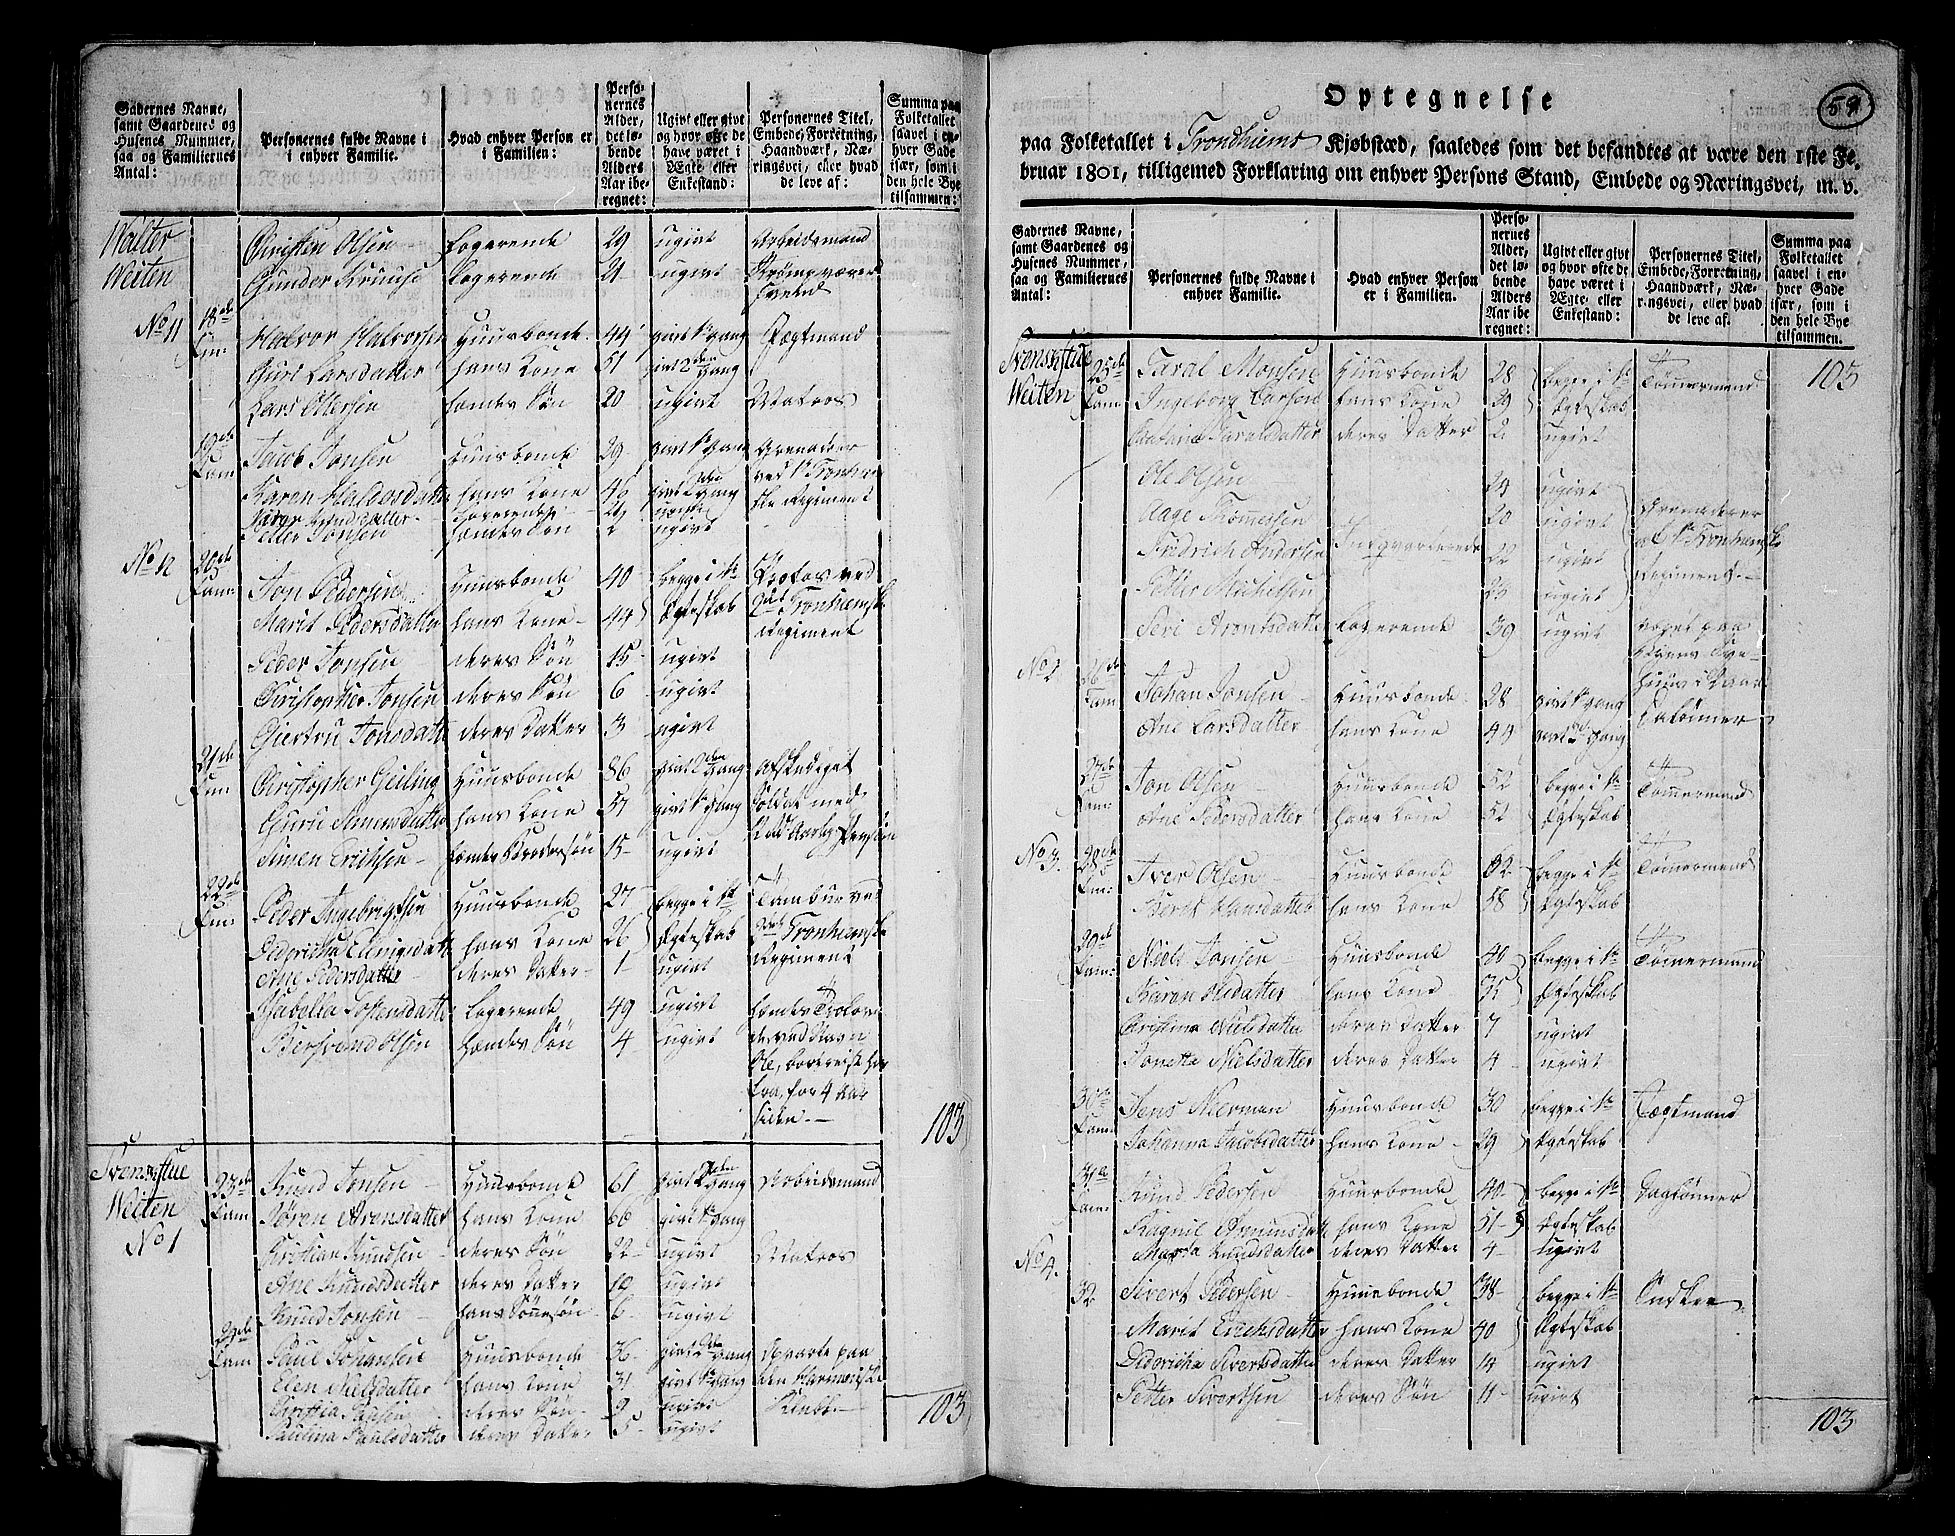 Gadernes Navne, samt Gaardenes og Husenes Nummer, saa og Familiernes Antal:
Personernes fulde Navne i i enhver Familie.
Hvad enhver Person er i Familien:
Personernes Alder, det løbende Alders Aar iberegnet:
Ugivt eller givt og hvor ofte de have været i Ægte- eller Enkestand:
Personernes Titel, Embede, Forretning, Haandværk, Næringsvei, eller hvad de leve af:
Summa paa Folketallet saavel i enhver Gade især, som i den hele Bye tilsammen:
Walter Weiten
Christen Olsen Logerende 29 ugivt Arbeidsmand
Gunder Kruuse Logerende 21 ugivt
No 11 18de Fam:
Halvor Halvorsen Huusbonde 44 givt 1te gang Fegtmand
Guri Larsdatter hans Kone 51 givt 2den gang
Lars Ottersen hendes Søn 20 ugivt Matros
19de Fam
Jacob Jonsen Huusbonde 29 givt 1te gang Grenadeer ved 1te Tronhiemske Regiment
Karen hans Kone 46 givt 2den gang
Logerende 29
Petter Jonsen hendes Søn 2 ugivt
No 12 20de Fam:
Jon Pedersen Huusbonde 40 begge i 1te Egteskab ved 2det Tronhiemske Regiment
Marit Pedersdatter hans Kone 44
Peder Jonsen deres Søn 15 ugivt
Christopher Jonsen deres Søn 6 ugivt
Giertru Jonsdatter deres Datter 3 ugivt
21de Fam
Christopher Geiling Huusbonde 86 givt 2den gang Afskediget Soldat med Aarlig Pension
Guru Simensdatter hans Kone 57 givt 1te gang
Simen Erichsen hendes Brodersøn 15 ugivt
22de Fam:
Peder Ingebrigtsen Huusbonde 27 begge i 1te Egteskab Tambur ved 2det Tronhiemske Regiment
hans Kone 26
Ane Pedersdatter deres Datter 1 ugivt
Ysabella Tostensdatter Logerende 49 ugivt hendes Trolovede ved Navn Ole, bortreiste her fra, for 4 Aar siden.
Bersvend Olsen hendes Søn 4 ugivt
103
Svensystue Weiten No 1
23de Fam:
Knud Jonsen Huusbonde 61 givt 2den gang Arbeidsmand
Søren Arensdatter hans Kone 66 givt 1te gang
Kristian Knudsen deres Søn 22 ugivt Matros
Ane Knudsdatter deres Datter 12 ugivt
Knud Jonsen hans Sønnesøn 6 ugivt
24de Fam
Paul Johansen Huusbonde 36 givt 2den gang Opvarter paa den Harmoniske Klub
Elen Nielsdatter hans Kone 31 givt 1te gang
deres Søn 9 ugivt
Paulina Paulsdatter deres Datter 5 ugivt
103
59
Optegnelse
paa Folketallet i Trondhiems Kjøbstæd, saaledes som det befandtes at være den 1ste Fe-
bruar 1801, tilligemed Forklaring om enhver Persons Stand, Embede og Næringsvei, m. v.
Gadernes Navne, samt Gaardenes og Husenes Nummer, saa og Familiernes Antal:
Personernes fulde Navne i enhver Familie.
Hvad enhver Person er i Familien.
Personernes Alder, det løbende Alders Aar iberegnet:
Ugivt eller givt og hvor ofte de have været i Ægte- eller Enkestand:
Personernes Titel, Embede, Forretning, Haandværk, Næringsvei, eller hvad de leve af.
Summa paa Folketallet saavel i enhver Gade især, som i den hele Bye tilsammen.
Svensystue Weiten 25de Fam 103
Taral Monsen Huusbonde 28 begge i 1te Egteskab Tømmermand
Ingeborg Larsen hans Kone 39
Taralsdatter deres Datter 2 ugivt
Ole Olsen 24 ugivt
Aage Thommesen 20 ugivt Grenaderer
Fridrich Andersen Inqvarterede 22 ugivt af 1te Tronhiemske Regiment
Petter Michelsen 23 ugivt
Seri Arentsdatter Logerende 39 ugivt
No 2 26de Fam
Johan Jonsen Huusbonde 28 givt 1te gang
Ane Larsdatter hans Kone 44 gang
27de Fam:
Jon Olsen Huusbonde 52 begge i 1te Egteskab Tømmermand
Ane Pedersdatter hans Kone 52
No 3. 28de Fam:
Iver Olsen Huusbonde 62 begge i 1te Egteskab Tømmermand
Berit Hansdatter hans Kone 58
29de Fam:
Niels Jonsen Huusbonde 40 begge i 1te Egteskab Tømmermand
Karen hans Kone 35
Cristina Nielsdatter deres Datter 7 ugivt
Jonetta Nielsdatter deres Datter 4 ugivt
30te Fam:
Jens Huusbonde 30 begge i 1te Egteskab Fegtmand
Johanna Jacobsdatter hans Kone 29
31te Fam:
Knud Pedersen Huusbonde 40 begge i 1te Egteskab Daglønner
Ragnil Amunsdatter hans Kone 51
Knudsdatter deres Datter 4 ugivt
No 4. 32
Sivert Pedersen Huusbonde 38 begge i 1te Egteskab
Marit Erichsdatter hans Kone 40
Dedericha Siversdatter deres Datter 14 ugivt
Petter Sivertsen deres Søn 11 ugivt
103